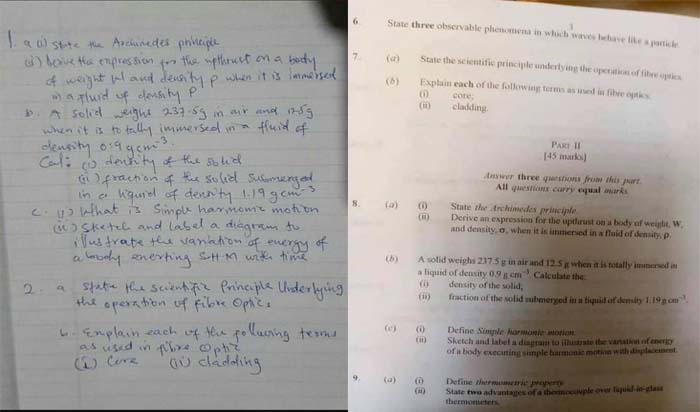 1. a (i) State the Archimedes principle
(ii) Derive the expression for the upthrust on a body
of weight W and density ρ when it is immersed
in a fluid of density P
b. A solid weighs 237.5g in air and 12.5g
when it is totally immersed in a fluid of
density 0.9 gcm⁻³.
Cal: (i) density of the solid
(ii) fraction of the solid submerged
in a liquid of density 1.19 gcm⁻³
c. (i) What is Simple harmonic motion
(ii) Sketch and label a diagram to
illustrate the variation of energy of
a body exerting S.H.M with time
2. a. State the scientific Principle Underlying
the operation of fibre Optics
b. Explain each of the following terms
as used in fibre Optic
(i) Core (ii) cladding
3
6. State three observable phenomena in which waves behave like a particle.
7. (a) State the scientific principle underlying the operation of fibre optics.
(b) Explain each of the following terms as used in fibre optics:
(i) core;
(ii) cladding.
PART II
[45 marks]
Answer three questions from this part.
All questions carry equal marks.
8. (a) (i) State the Archimedes principle.
(ii) Derive an expression for the upthrust on a body of weight, W,
and density, σ, when it is immersed in a fluid of density, ρ.
(b) A solid weighs 237.5 g in air and 12.5 g when it is totally immersed in
a liquid of density 0.9 g cm⁻³. Calculate the:
(i) density of the solid;
(ii) fraction of the solid submerged in a liquid of density 1.19 g cm⁻³.
(c) (i) Define Simple harmonic motion.
(ii) Sketch and label a diagram to illustrate the variation of energy
of a body executing simple harmonic motion with displacement.
9. (a) (i) Define thermometric property.
(ii) State two advantages of a thermocouple over liquid-in-glass
thermometers.